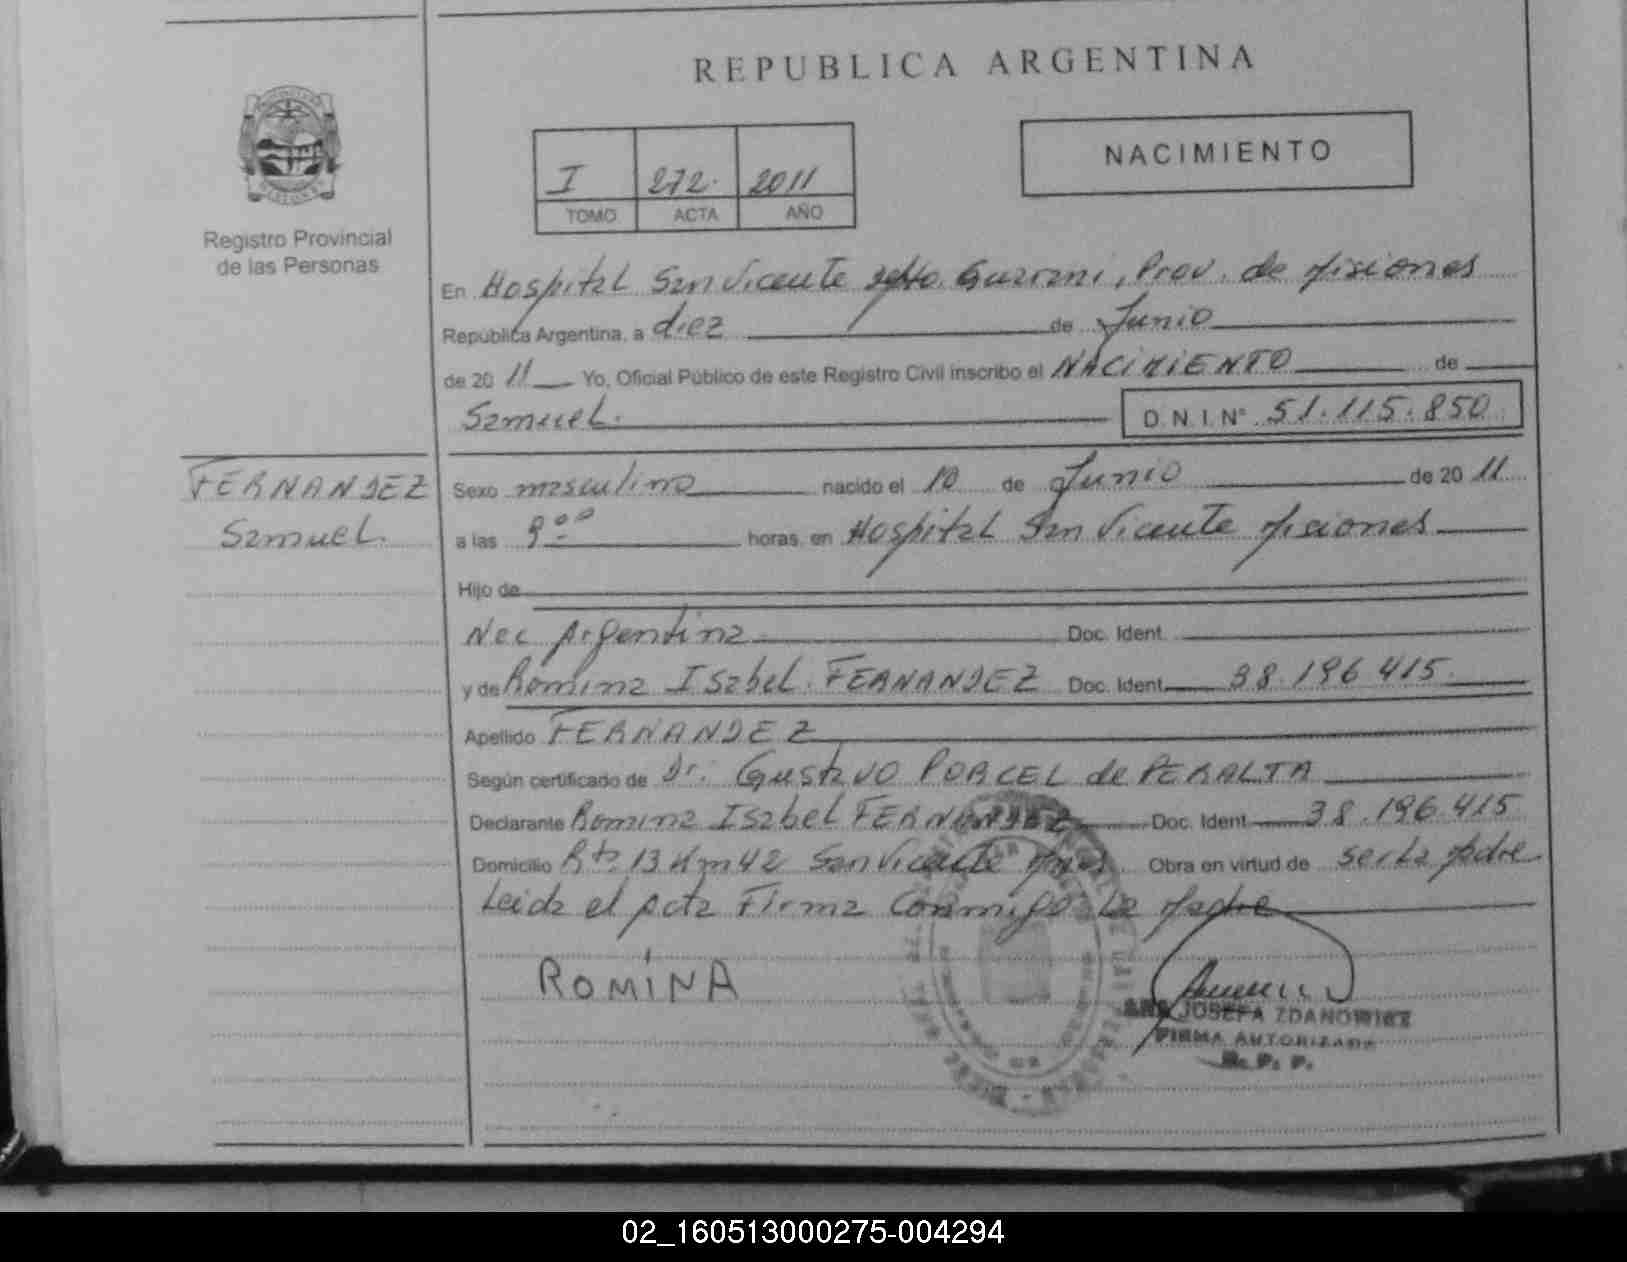 REPUBLICA ARGENTINA
NACIMIENTO
I 272 2011
TOMO ACTA AÑO
Registro Provincial
de las Personas
En Hospital San Vicente Dpto. Guarani, Prov. de Misiones
República Argentina, a diez de Junio
de 2011 Yo, Oficial Público de este Registro Civil inscribo el NACIMIENTO de
Samuel. D.N.I.Nº 51.115.850
FERNANDEZ
Samuel.
Sexo masculino nacido el 10 de Junio de 2011
a las 9:00 horas, en Hospital San Vicente Misiones
Hijo de
Nac Argentina Doc. Ident.
y de Romina Isabel FERNANDEZ Doc. Ident. 38.196 415.
Apellido FERNANDEZ
Según certificado de Dr. Gustavo PORCEL de PERALTA
Declarante Romina Isabel FERNANDEZ Doc. Ident 38.196.415
Domicilio Rta. 13 Km 42 San Vicente Mnes. Obra en virtud de ser la Madre
Leida el Acta Firma Conmigo La Madre
ROMINA
ANA JOSEFA ZDANOWICZ
FIRMA AUTORIZADA
R. P. P.
02_160513000275-004294